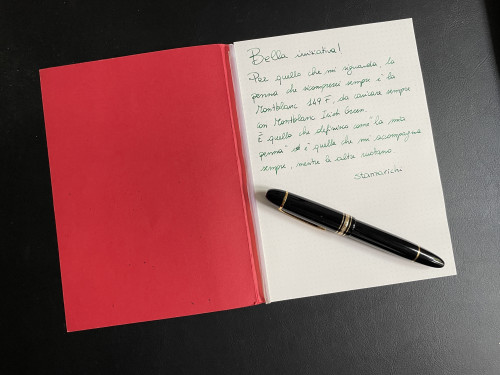 Bella iniziativa!
Per quello che mi riguarda, la
penna che scomprerei sempre è la
Montblanc 149 F, da caricare sempre
con Montblanc Irish Green.
È quella che definisco come "la mia
penna" è quella che mi accompagna
sempre, mentre le altre ruotano
stamarichi